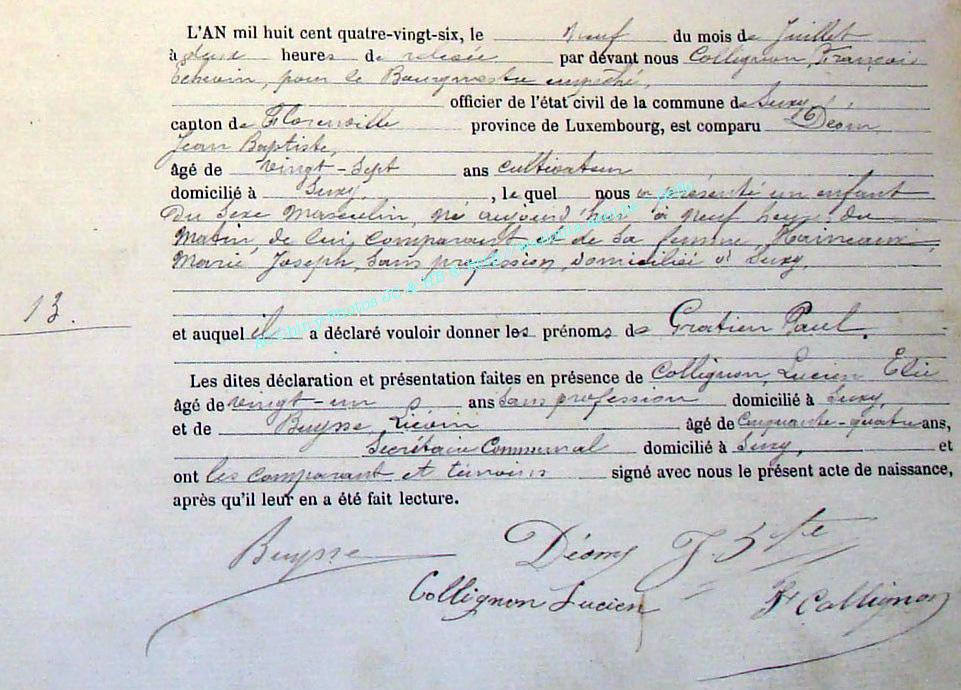 L'AN mil huit cent quatre-vingt-six, le neuf du mois de Juillet
à deux heures de relevée par devant nous Collignon, François
Echevin, pour le Bourgmestre empêché,
officier de l'état civil de la commune de Suxy,
canton de Florenville province de Luxembourg, est comparu Déom
Jean Baptiste,
âgé de vingt-sept ans cultivateur
domicilié à Suxy, , lequel nous a présenté un enfant
Du Sexe Masculin, né aujourd'hui à neuf heures du
Matin, de lui, comparant et de Sa femme, Haineaux
Marie Joseph, Sans profession, domiciliée à Suxy,
13.
et auquel il a déclaré vouloir donner les prénoms de Gratien Paul.
Les dites déclaration et présentation faites en présence de Collignon, Lucien Elie
âgé de vingt-un ans Sans profession domicilié à Suxy,
et de Buysse Liévin âgé de Cinquante-quatre ans,
Secrétaire Communal domicilié à Suxy, et
ont les comparant et témoins signé avec nous le présent acte de naissance,
après qu'il leur en a été fait lecture.
Buysse Déom J. Bte
Collignon Lucien Fr Collignon